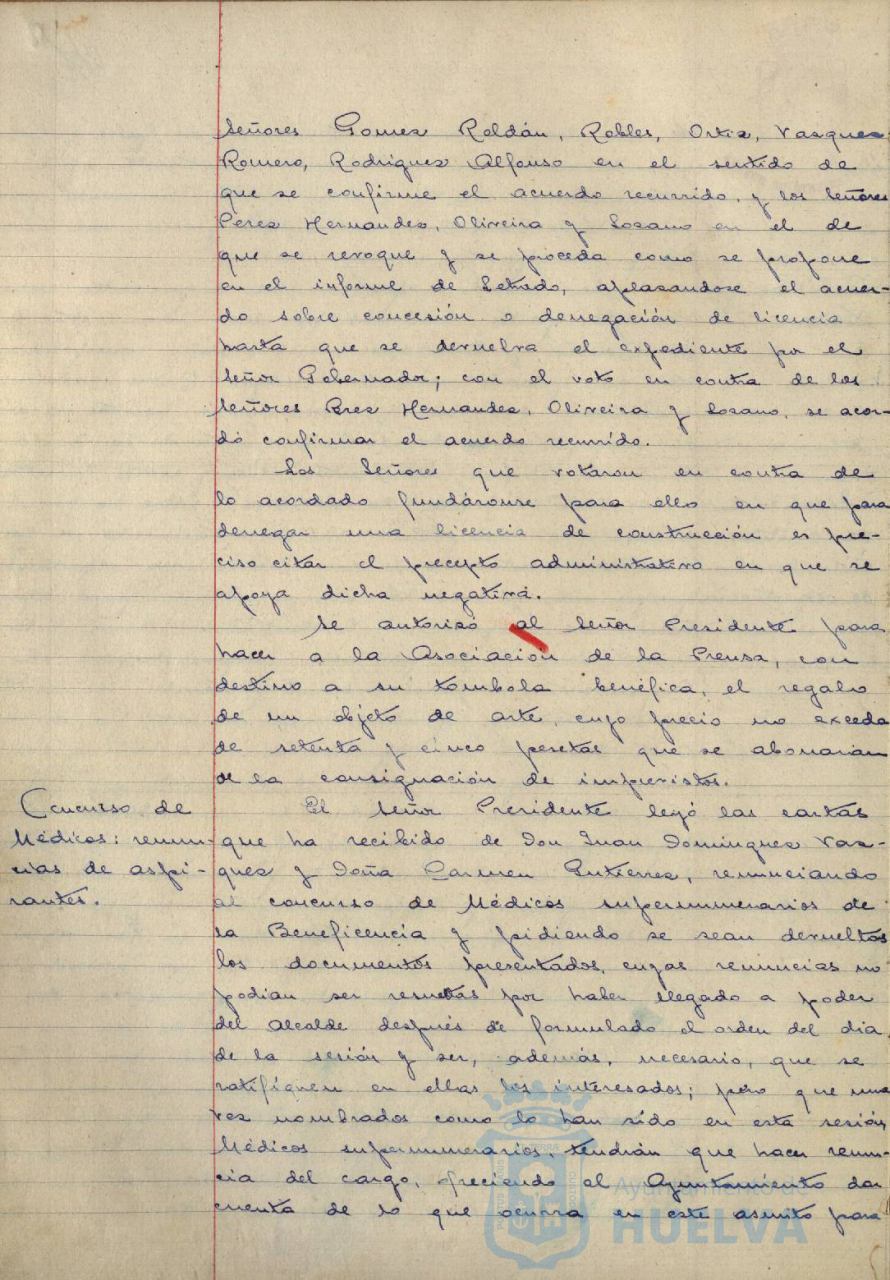 Señores Gomez Roldán, Robles, Ortiz, Vazquez
Romero, Rodriguez Alfonso en el sentido de
que se confirme el acuerdo recurrido, y los Señores
Perez Hernandez, Oliveira y Lozano en el de
que se revoque y se proceda como se propone
en el informe de Letrado, aplazandose el acuer-
do sobre concesión o denegación de licencia
hasta que se devuelva el expediente por el
Señor Gobernador; con el voto en contra de los
Señores Prez Hernandez, Oliveira y Lozano, se acor-
dó confirmar el acuerdo recurrido.
Los Señores que votaron en contra de
lo acordado fundáronse para ello en que para
denegar una licencia de construcción es pre-
ciso citar el precepto administrativo en que se
apoya dicha negativa.
Se autorizó al Señor Presidente para
hacer a la Asociación de la Prensa, con
destino a su tombola benéfica, el regalo
de un objeto de arte, cuyo precio no exceda
de setenta y cinco pesetas que se abonarán
de la consignación de imprevistos.
Concurso de
Médicos: renun-
cias de aspi-
rantes.
El Señor Presidente leyó las cartas
que ha recibido de Don Juan Dominguez Vaz-
quez y Doña Carmen Gutierrez, renunciando
al concurso de Médicos supernumerarios de
la Beneficencia y pidiendo se sean devueltos
los documentos presentados, cuyas renuncias no
podian ser resueltas por haber llegado a poder
del Alcalde después de formulado el orden del dia
de la sesión y ser, además, necesario, que se
ratifiquen en ellas los interesados; pero que una
vez nombrados como lo han sido en esta sesión
Médicos supernumerarios, tendrán que hacer renun-
cia del cargo, ofreciendo al Ayuntamiento dar
cuenta de lo que ocurra en este asunto para
Ayuntamiento de
HUELVA